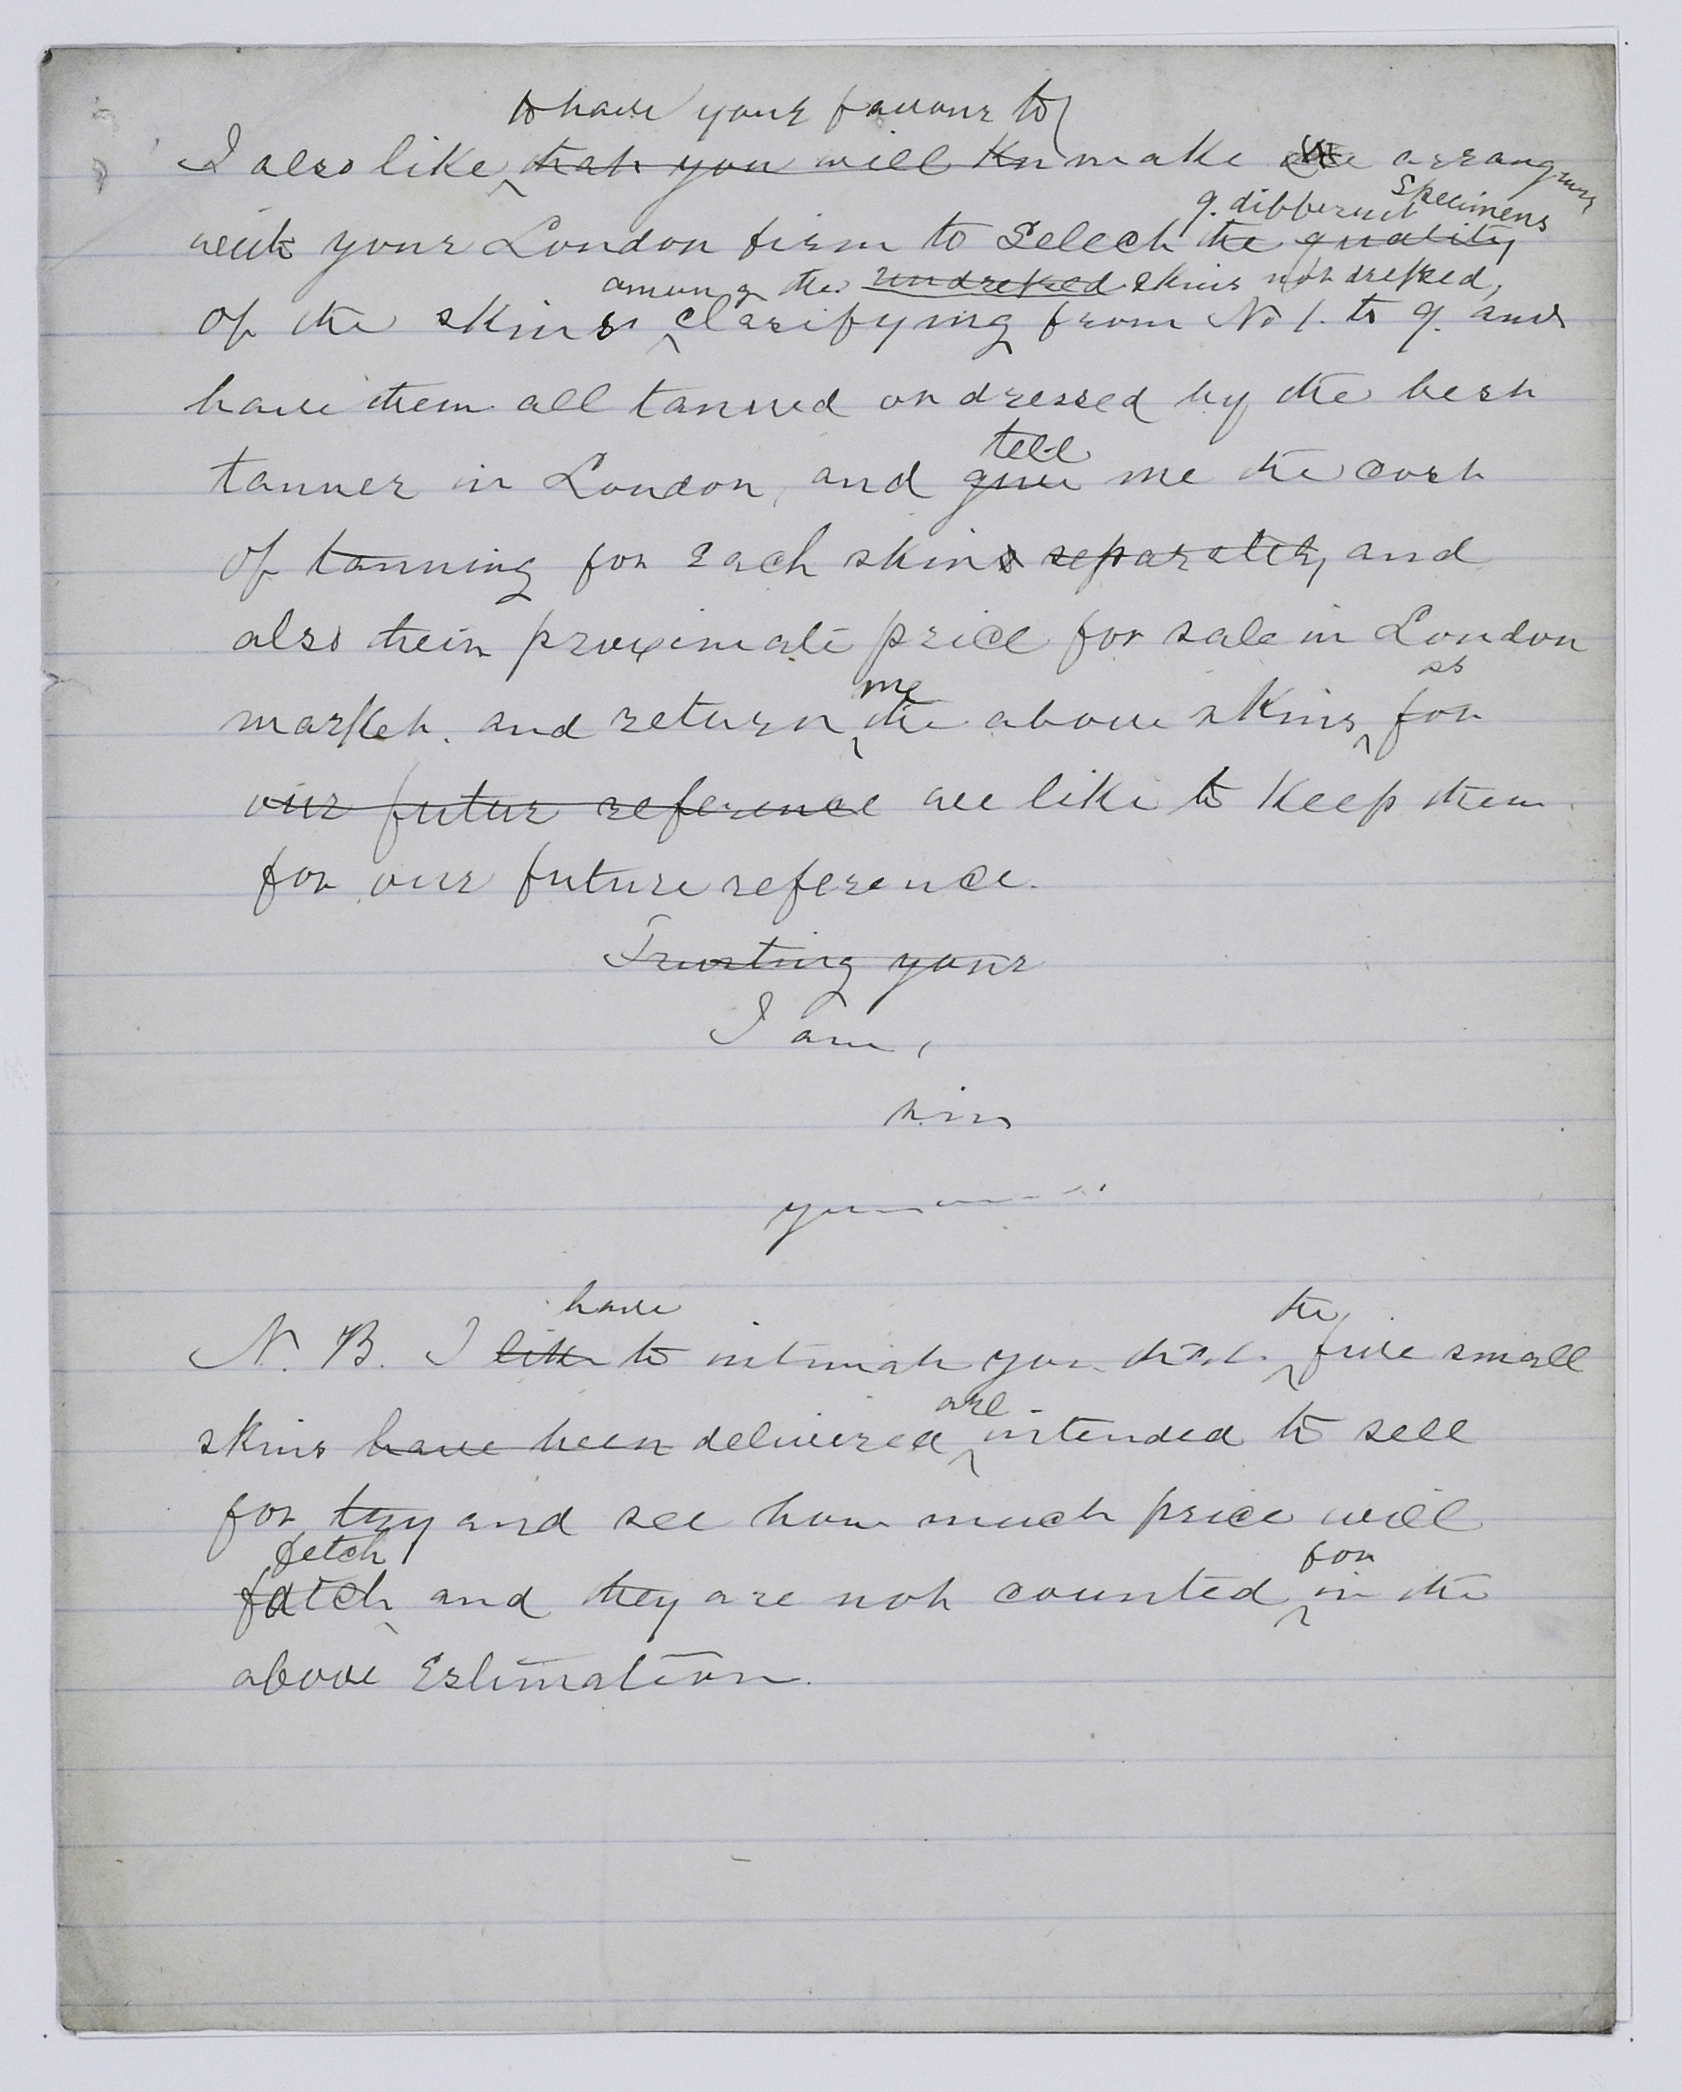 to have your favour to
I also like that you will kn make the arrangmen
9. different specimens
with your London firm to Select the quality
among the undressed skins not dressed,
of the skins clasifying from No 1. to 9. and
have them all tanned or dressed by the best
tell
tanner in London, and give me the cost
of tanning for each skins separately, and
also their proximate price for sale in London
me as
market. and return the above skins for
our futur reference we like to keep them
for our future reference.
Trusting your
I am,
sir
have the
N. B. I like to intimate you that five small
are
skins have been delivered intended to sell
for try and see how much price will
fetch for
fatch and they are not counted in the
above Estimation.